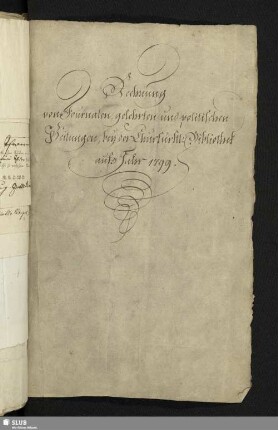 Rechnung
vom Journalen, gelehrten und politischen
Zeitungen, bey der Churfürstl. Bibliothek
aufs Jahr 1799.
SLUB